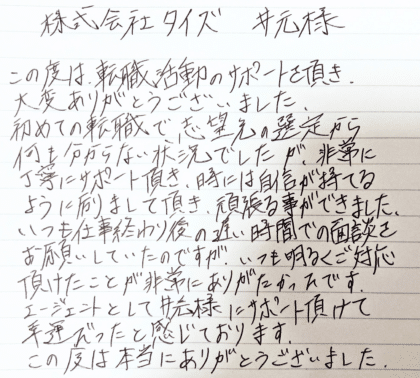 株式会社タイズ 井元様
この度は、転職活動のサポートを頂き、
大変ありがとうございました。
初めての転職で、志望先の選定から
何も分からない状況でしたが、非常に
丁寧にサポート頂き、時には自信が持てる
ように励まして頂き、頑張る事ができました。
いつも仕事終わり後の遅い時間での面談を
お願いしていたのですが、いつも明るくご対応
頂けたことが非常にありがたかったです。
エージェントとして井元様にサポート頂けて
幸運だったと感じております。
この度は本当にありがとうございました。